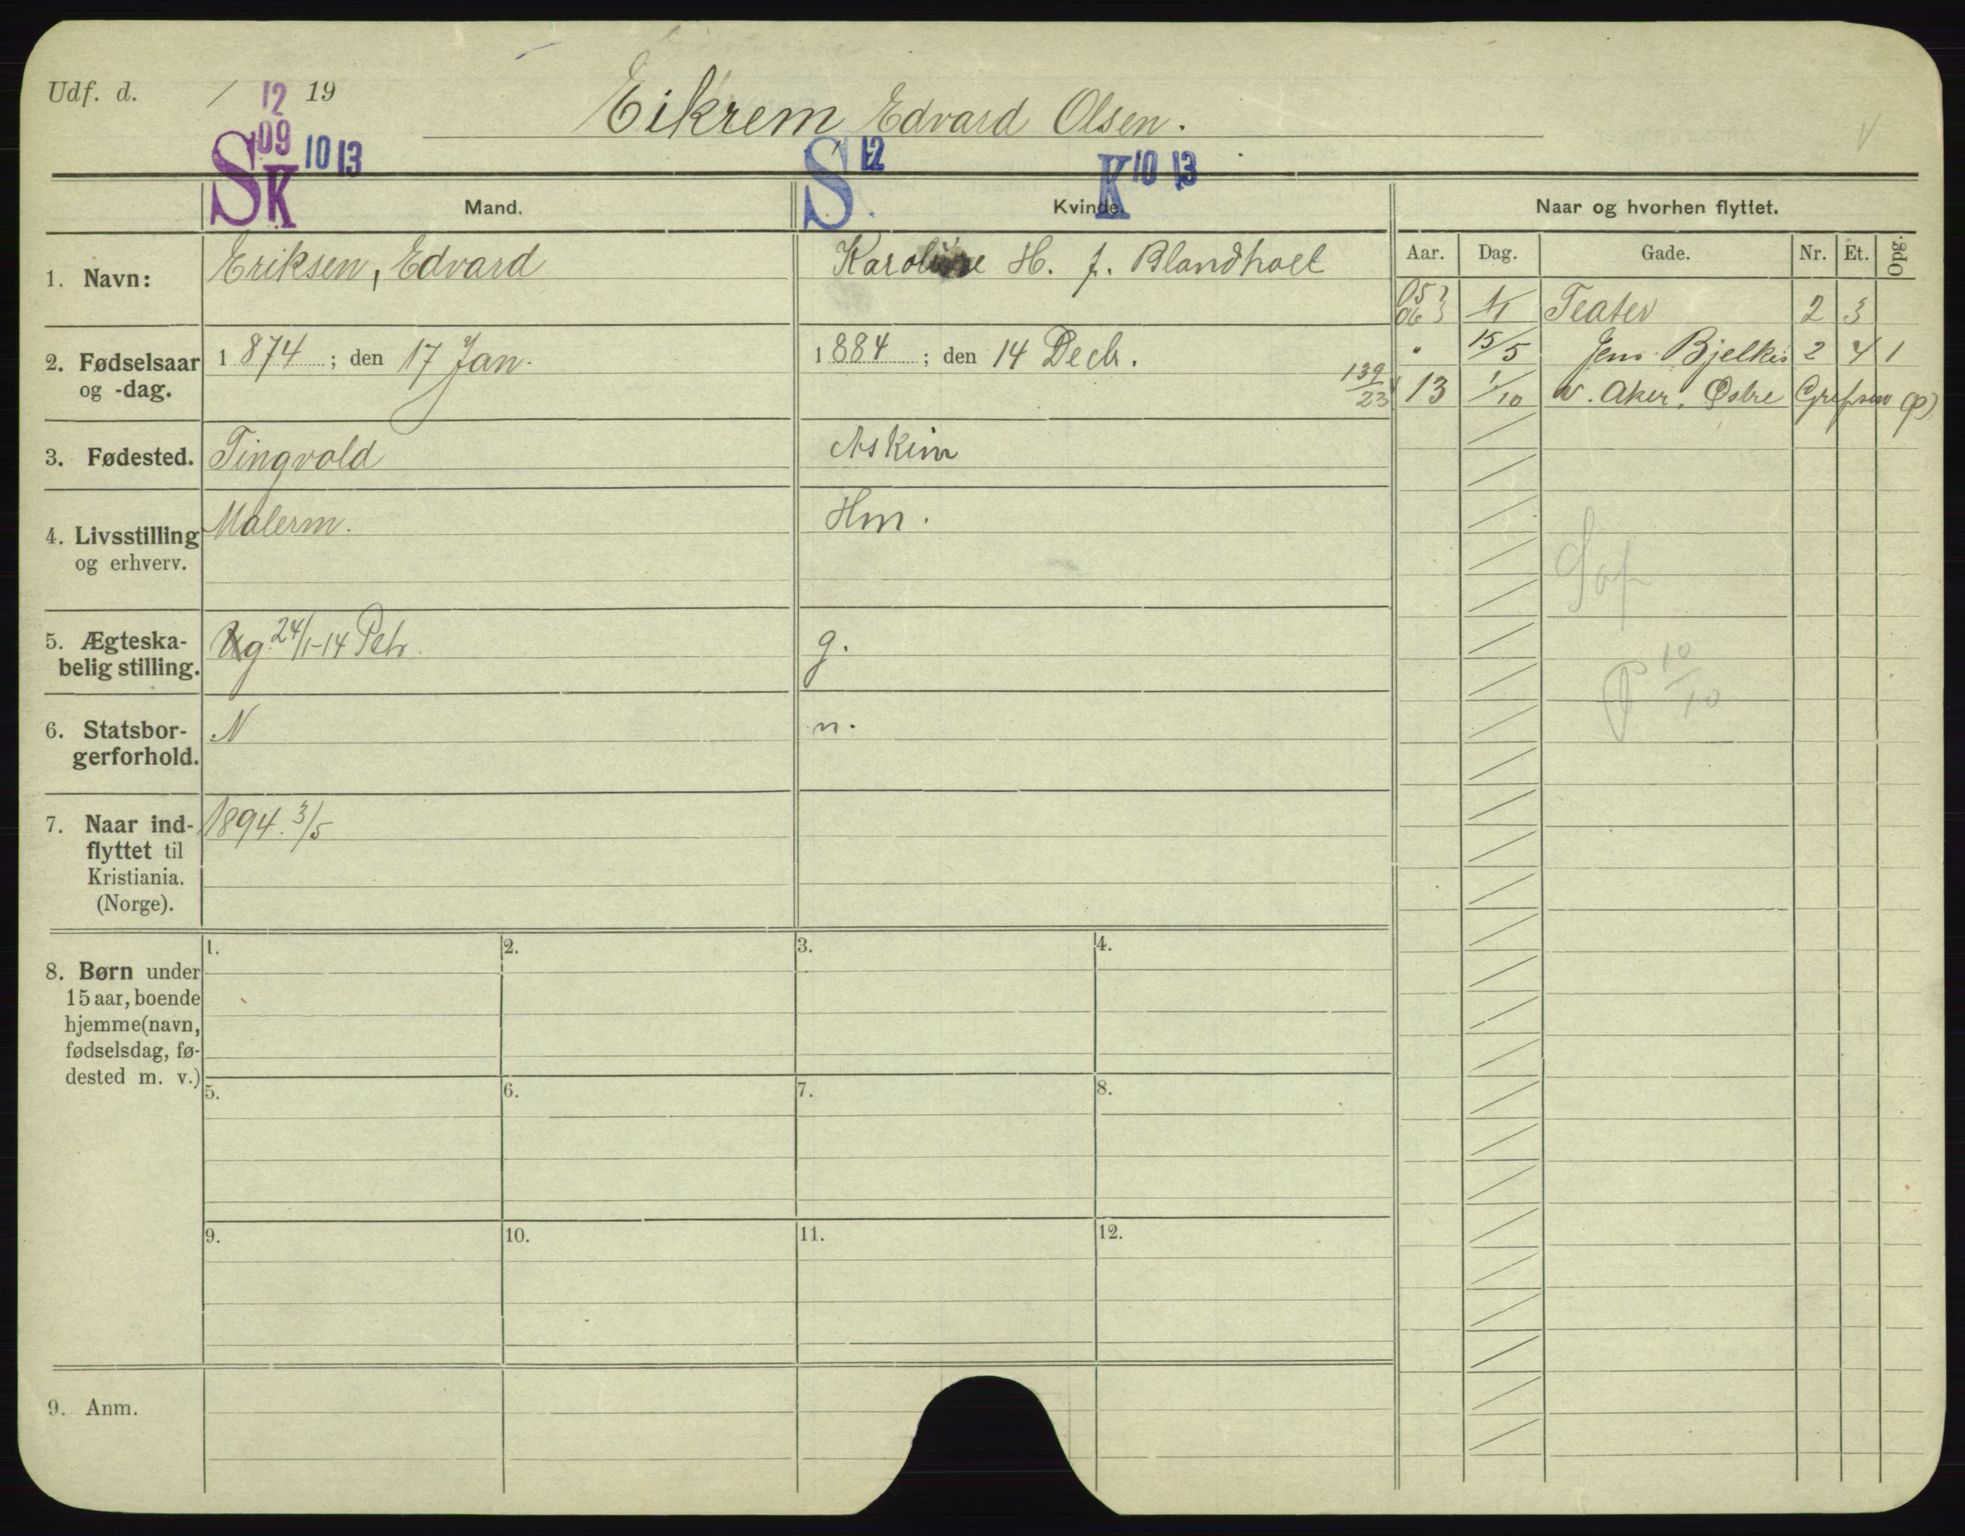 Udf. d. / 12 19
Eikrem Edvard Olsen.
S 09 K 10 13
S 12 K 10 13
Mand.
Kvinde.
Naar og hvorhen flyttet.
Aar. Dag. Gade. Nr. Et. Opg.
1. Navn: Eriksen, Edvard
Karoline H. f.
05 06 Teater 2 3
2. Fødselsaar og -dag.
1874; den 17 Jan.
1884; den 14 Decb.
" 15/5 Jens Bjelkes 2 4 1
139/23
13 1/10 v. Aker, Østre Grefsen (P)
3. Fødested. Tingvold
Askim
4. Livsstilling
og erhverv.
Malerm.
Hm.
Sap
5. Ægteska-
belig stilling.
Ug 24/1-14 Petr.
g.
P 10/10
6. Statsbor-
gerforhold.
N
n.
7. Naar ind-
flyttet til
Kristiania.
(Norge).
1894. 3/5
8. Børn under
15 aar, boende
hjemme(navn,
fødselsdag, fø-
dested m. v.)
1. 2. 3. 4.
5. 6. 7. 8.
9. 10. 11. 12.
9. Anm.